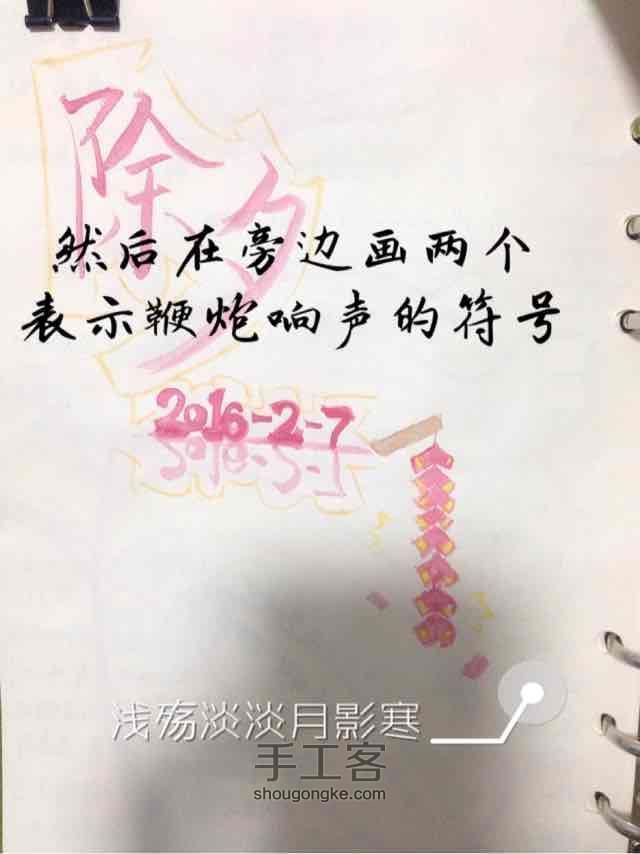 除夕
然后在旁边画两个
表示鞭炮响声的符号
2016-2-7
浅殇淡淡月影寒
手工客
shougongke.com